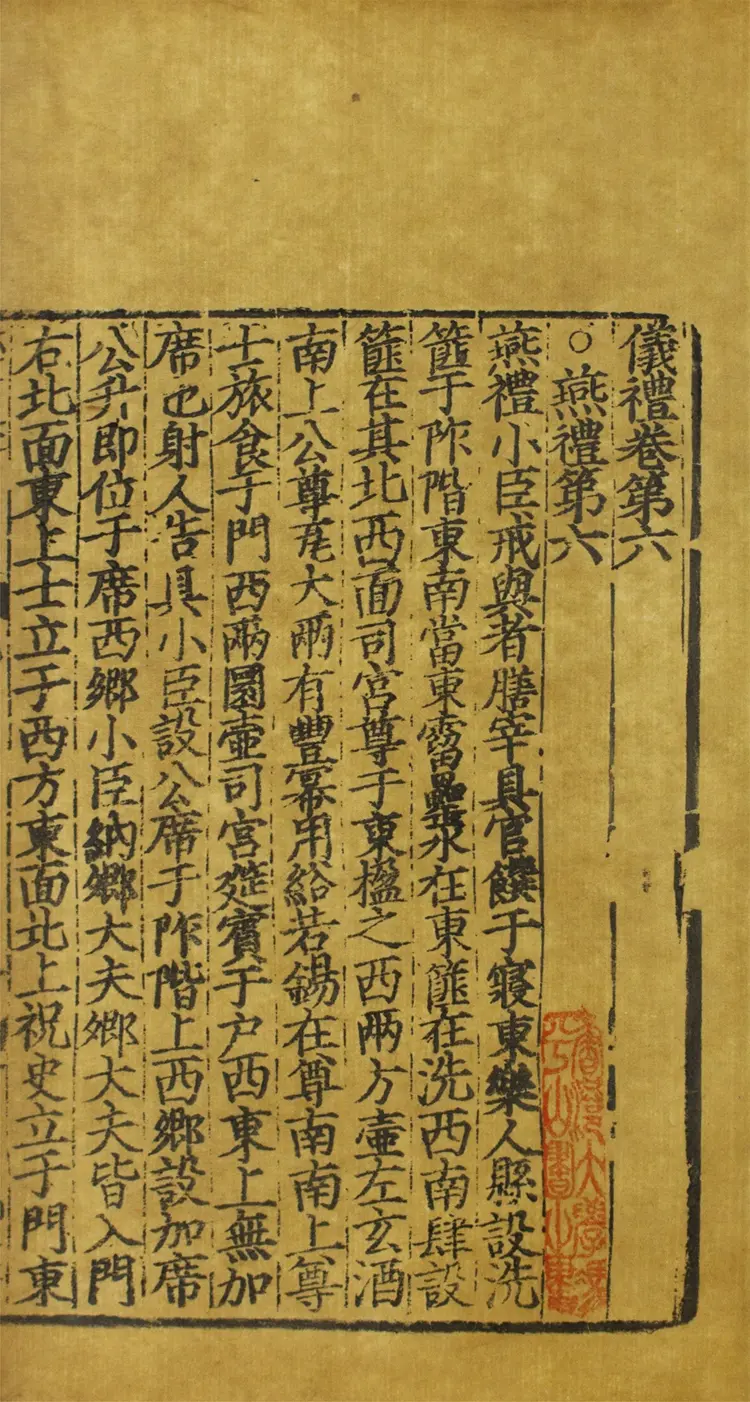 儀禮卷第六
○燕禮第六
燕禮小臣戒與者膳宰具官饌于寢東樂人縣設洗
篚于阼階東南當東霤罍水在東篚在洗西南肆設
篚在其北西面司宮尊于東楹之西兩方壷左玄酒
南上公尊瓦大兩有豐冪用綌若錫在尊南南上尊
士旅食于門西兩圜壷司宮筵賔于户西東上無加
席也射人告具小臣設公席于阼階上西鄉設加席
公升即位于席西鄉小臣納卿大夫卿大夫皆入門
右北面東上士立于西方東面北上祝史立于門東